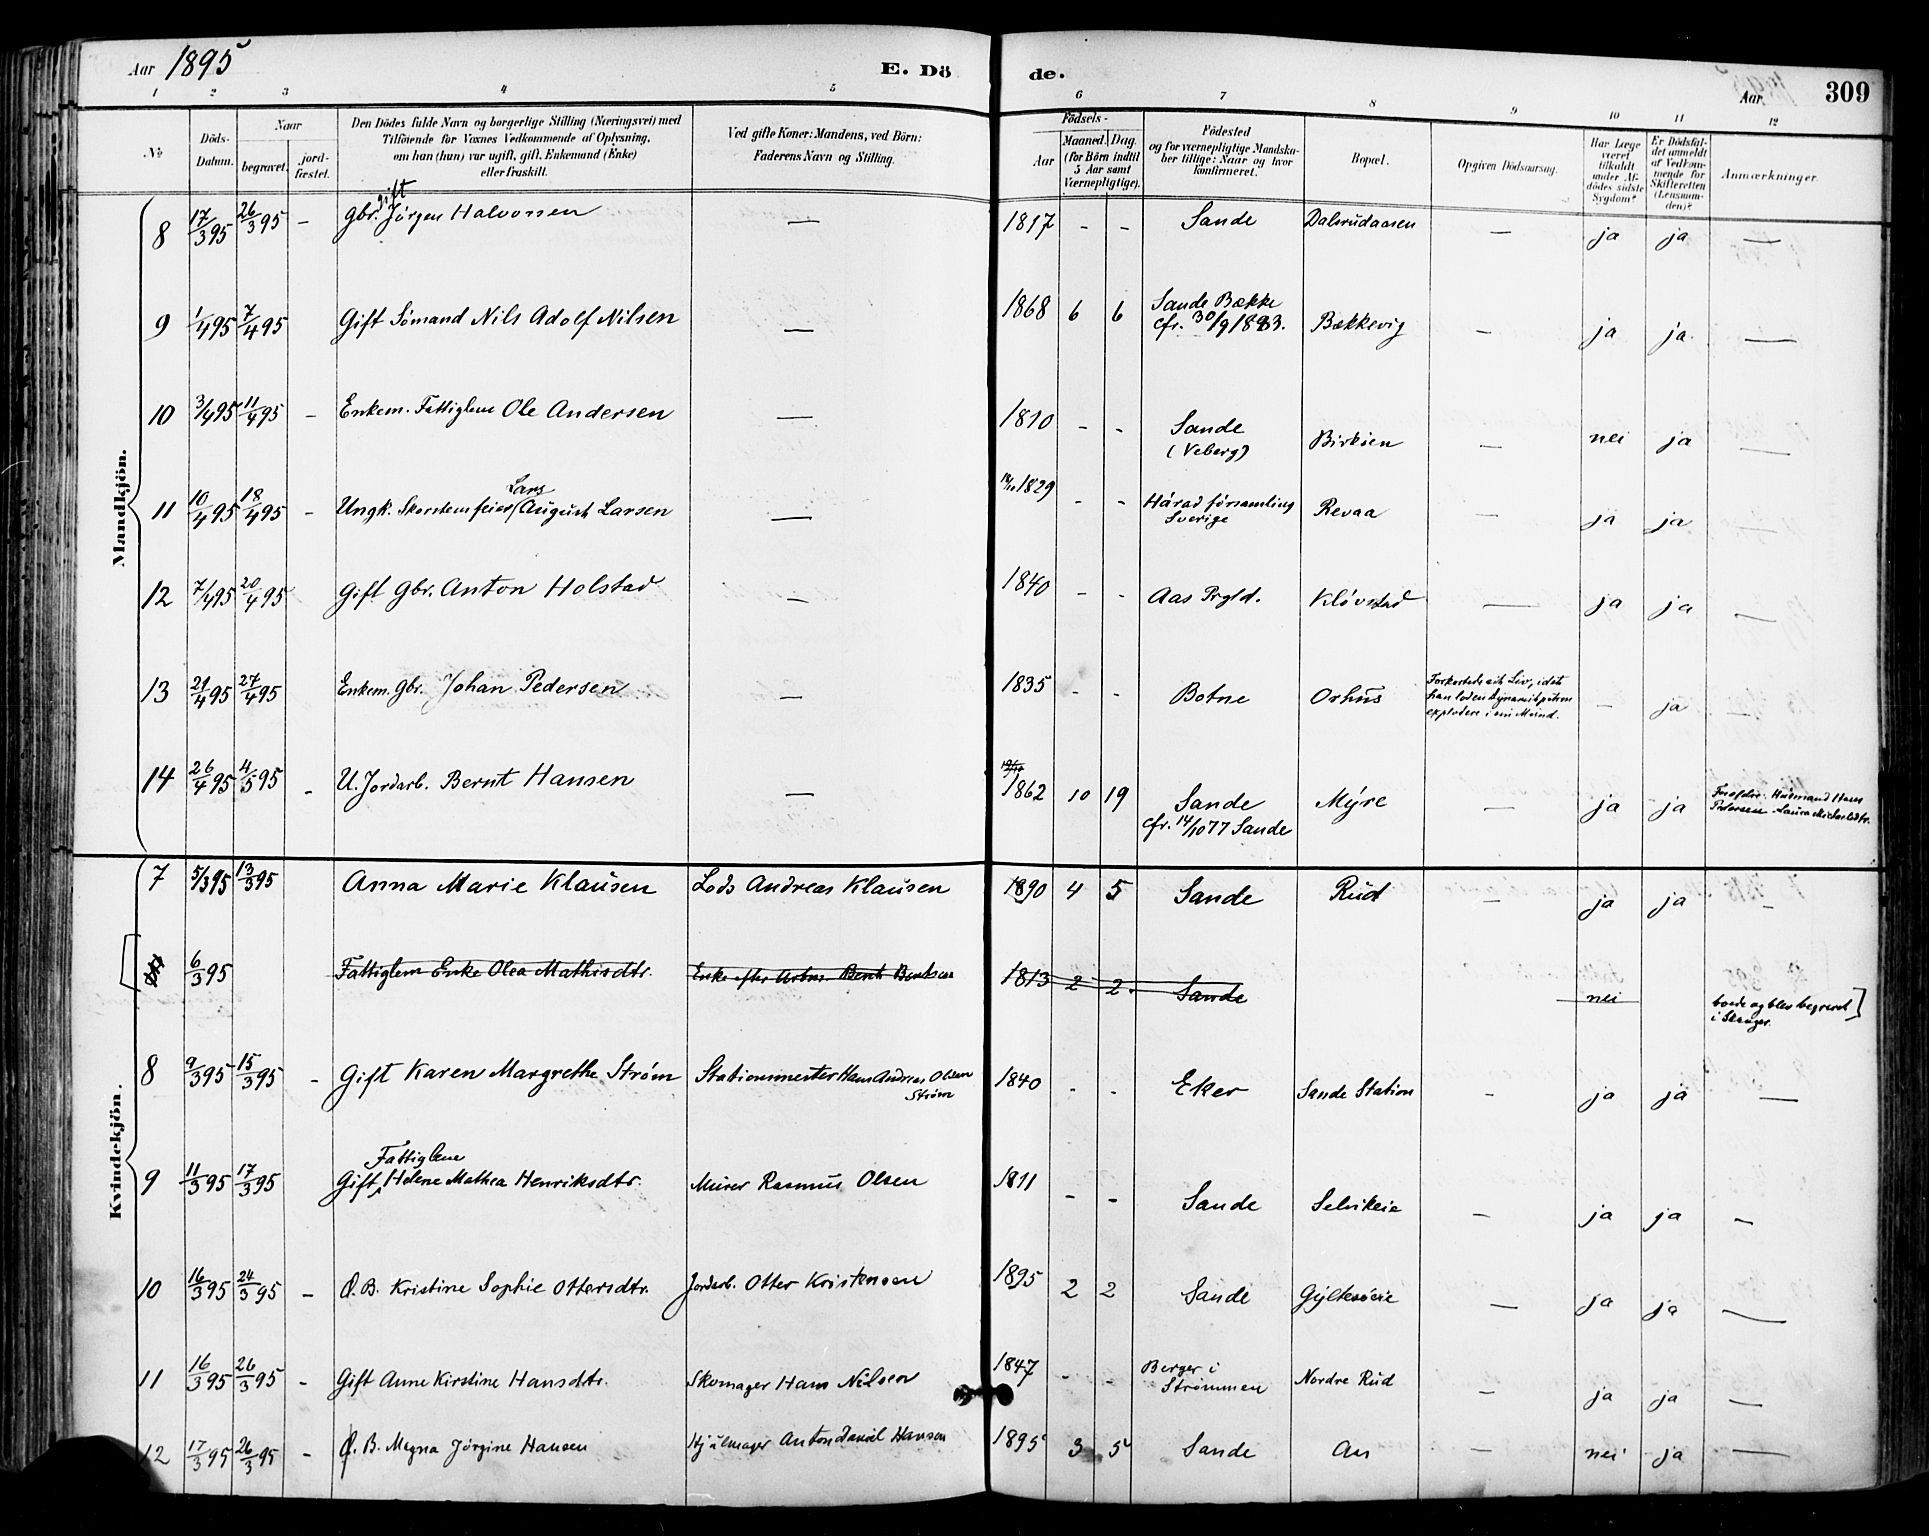 Aar 1895
E. Dö
de.
Aar
309
1 2 3 4 5 6 7 8 9 10 11 12
№
Döds-Datum.
Naar
begravet.
jord-fæstet.
Den Dödes fulde Navn og borgerlige Stilling (Næringsvei) med
Tilföiende for Voxnes Vedkommende af Oplysning,
om han (hun) var ugift, gift, Enkemand (Enke)
eller fraskilt.
Ved gifte Koner: Mandens, ved Börn:
Faderens Navn og Stilling.
Födsels-
Aar
Maaned. Dag.
(for Börn indtil
5 Aar samt
Værnepligtige).
Födested
og for værnepligtige Mandska-
ber tillige: Naar og hvor
konfirmeret.
Bopæl.
Opgiven Dödsaarsag.
Har Læge
været
tilkaldt
under Af-
dödes sidste
Sygdom?
Er Dödsfal-
det anmeldt
af Vedkom-
mende for
Skifteretten
(Lensman-
den)?
Anmærkninger.
Mandkjön.
8 17/3 95 26/3 95 – gbr. gift Jörgen Halvorsen — 1817 - - Sande Dalsrudaasen — ja ja —
9 1/4 95 7/4 95 Gift Sömand Nils Adolf Nilsen — 1868 6 6 Sande Bække
cfr. 30/9 1883. Bækkevig — ja ja. —
10 3/4 95 11/4 95 – Enkem. Fattiglem Ole Andersen — 1810 - - Sande
(Veberg) Birköen — nei ja —
11 10/4 95 18/4 95 – Ungk. Skorstensfeier Lars August Larsen — 1829 - - Hárad församling
Sverige Revaa — ja ja —
12 7/4 95 20/4 95 Gift Gbr. Anton Holstad — 1840 - - Aas Prgld. Klövstad — ja ja —
13 21/4 95 27/4 95 Enkem. Gbr. Johan Pedersen — 1835 - - Botne Orhus Forkortede sit Liv, idet
han lod en Dynamitpatron
explodere i sin Mund. — ja —
14 26/4 95 4/5 95 - U. Jordarb. Bernt Hansen — 1862 10 19 Sande
cfr. 14/10 77 Sande Mýre — ja ja Forældre: Husmand Hans
Pedersen
Kvindekjön.
7 5/3 95 13/3 95 Anna Marie Klausen Lods Andreas Klausen 1890 4 5 Sande Rud — ja ja –
6/3 95 Fattiglem Enke Olea Mathisdtr. Enke efter Arbm. Bent Bentsen 1813 2 2. Sande nei boede og blev begravet
i Skoger.
8 9/3 95 15/3 95 - Gift Karen Margrethe Ström Stationmester Hans Andreas Olsen
Ström 1840 - - Eker Sande Station - ja ja —
9 11/3 95 17/3 95 Gift Fattiglem Helene Mathea Henriksdtr. Murer Rasmus Olsen 1811 - - Sande Selvikeie — ja ja —
10 16/3 95 24/3 95 – O. B. Kristine Sophie Ottersdtr. Jordarb. Otter Kristensen 1895 2 2 Sande Gyltesöeie — ja ja —
11 16/3 95 26/3 95 - Gift Anne Kirstine Hansdtr. Skomager Hans Nilsen 1847 - - Berger i
Strömmen Nordre Rud — ja ja —
12 17/3 95 26/3 95 – O. B. Magna Jörgine Hansen Hjulmager Anton Daniel Hansen 1895 3 5 Sande Au — nei ja —